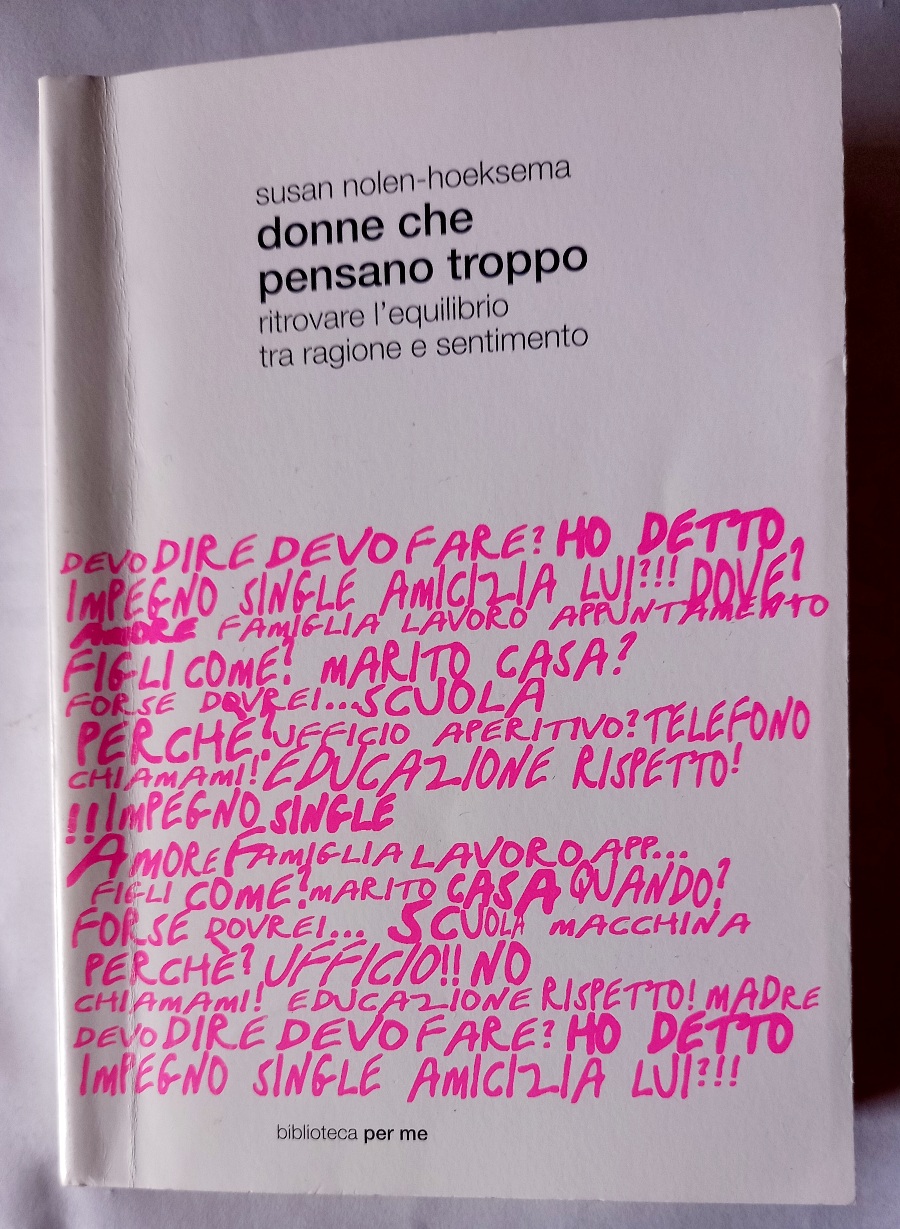 susan nolen-hoeksema
donne che
pensano troppo
ritrovare l'equilibrio
tra ragione e sentimento
DEVO DIRE DEVO FARE? HO DETTO
IMPEGNO SINGLE AMICIZIA LUI?!!! DOVE?
AMORE FAMIGLIA LAVORO APPUNTAMENTO
FIGLI COME? MARITO CASA?
FORSE DOVREI...SCUOLA
PERCHÈ? UFFICIO APERITIVO? TELEFONO
CHIAMAMI! EDUCAZIONE RISPETTO!
!!IMPEGNO SINGLE
AMORE FAMIGLIA LAVORO APP...
FIGLI COME? MARITO CASA QUANDO?
FORSE DOVREI... SCUOLA MACCHINA
PERCHÈ? UFFICIO!! NO
CHIAMAMI! EDUCAZIONE RISPETTO! MADRE
DEVO DIRE DEVO FARE? HO DETTO
IMPEGNO SINGLE AMICIZIA LUI?!!!
biblioteca per me